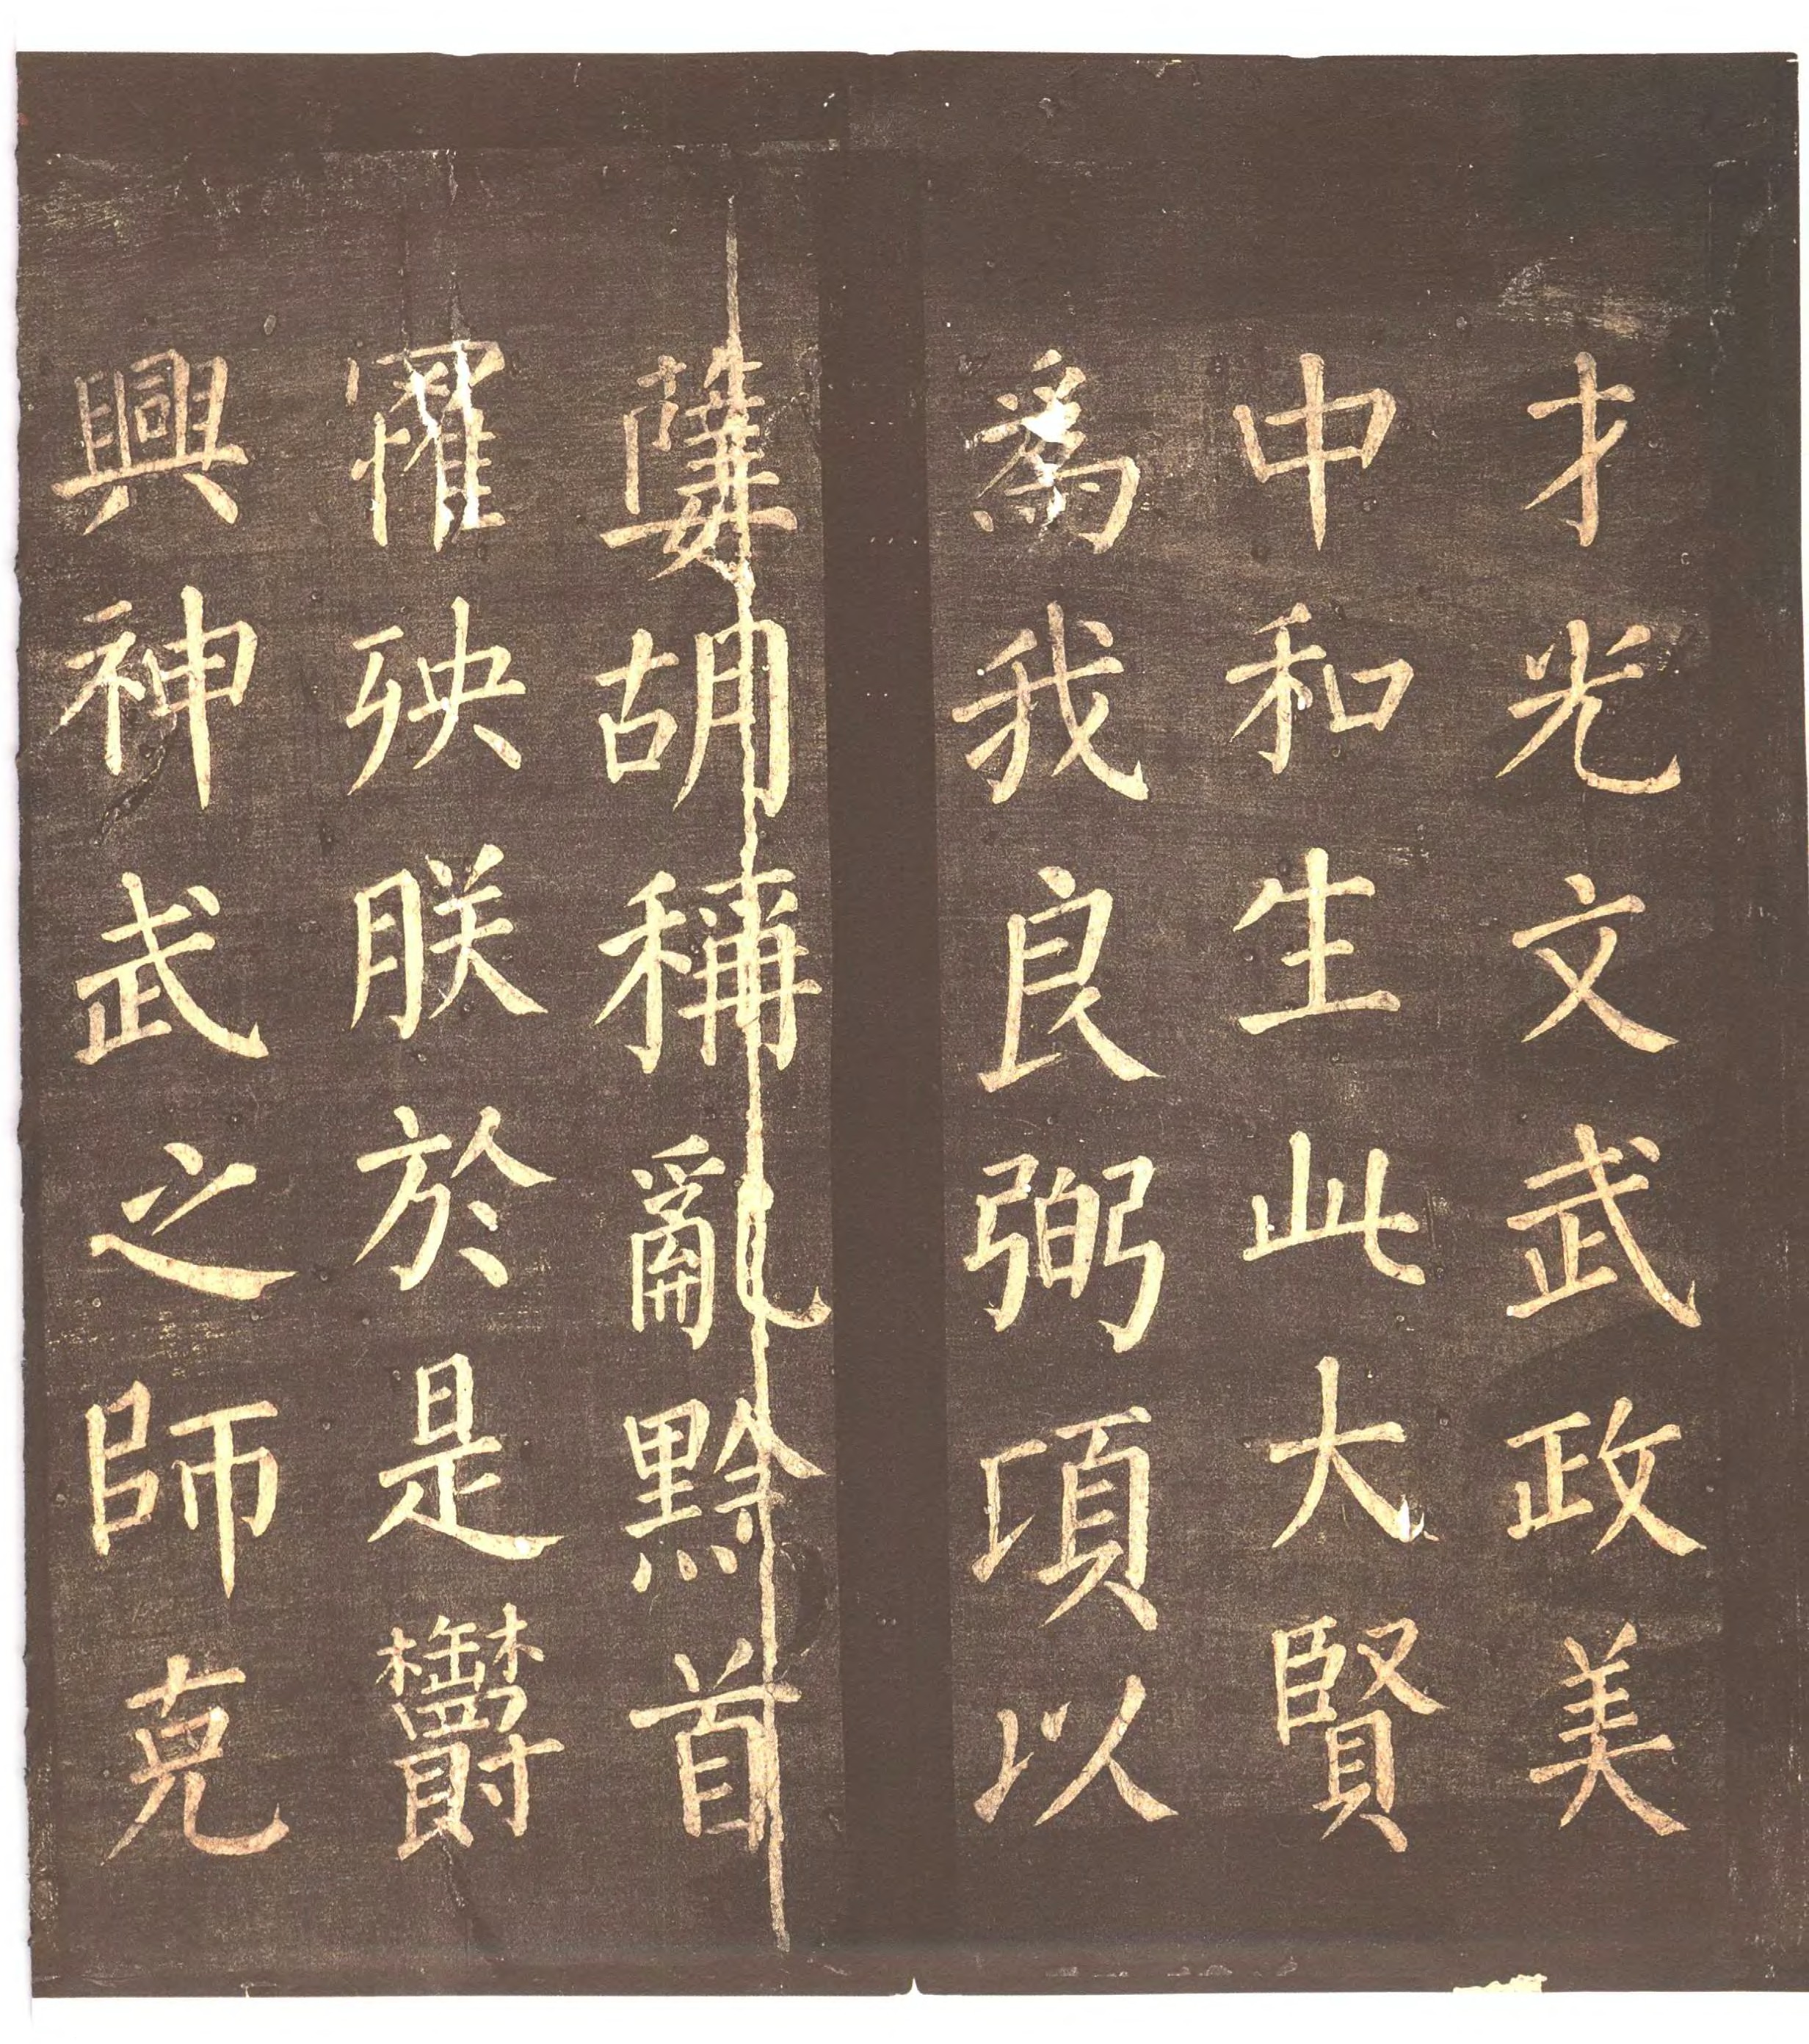 才光文武政美
中和生此大賢
爲我良弼項以
㜸胡稱亂黔首
罹殃朕於是欝
興神武之師克